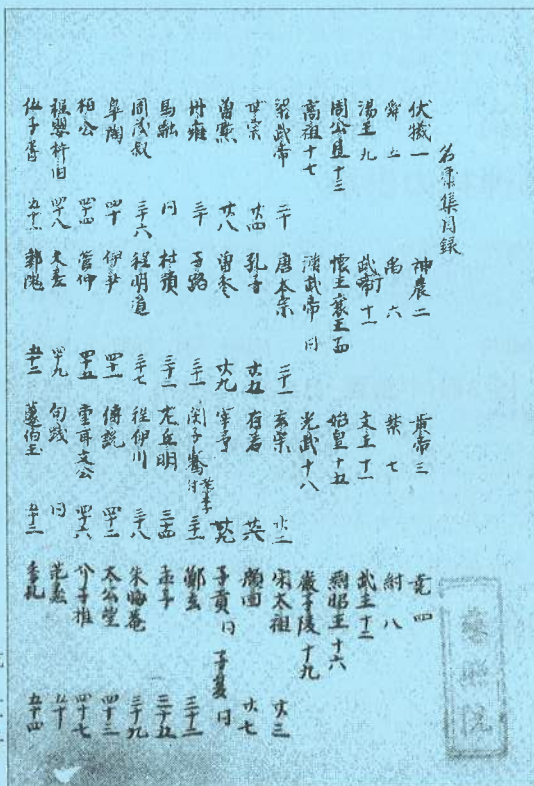 名集集目録
伏犧一 神農二 黄帝三 堯四
舜五 禹六 桀七 紂八
湯王九 武丁十一 文王十一 武王十二
周公旦十三 懐王襄王 始皇十五 燕昭王十六
高祖十七 漢武帝同 光武十八 嚴子陵十九
梁武帝二十 唐太宗二十一 玄宗廿二 宋太祖廿三
世宗廿四 孔子廿五 有若廿六 顔回廿七
曽點廿八 曽参廿九 宰予 子貢同 子夏同
冉雍三十 子路三十一 閔子騫 鄭玄三十三
馬融同 杜預三十二 左丘明三十四 孟子三十五
周茂叔三十六 程明道三十七 程伊川三十八 朱晦菴三十九
皐陶四十 伊尹四十一 傅説四十二 太公望四十三
桓公四十四 管仲四十五 重耳文公四十六 介子推四十七
程嬰杵臼四十八 夫差四十九 句践同 范蠡五十
伍子胥五十一 郭隗五十二 蘧伯玉五十三 季札五十四